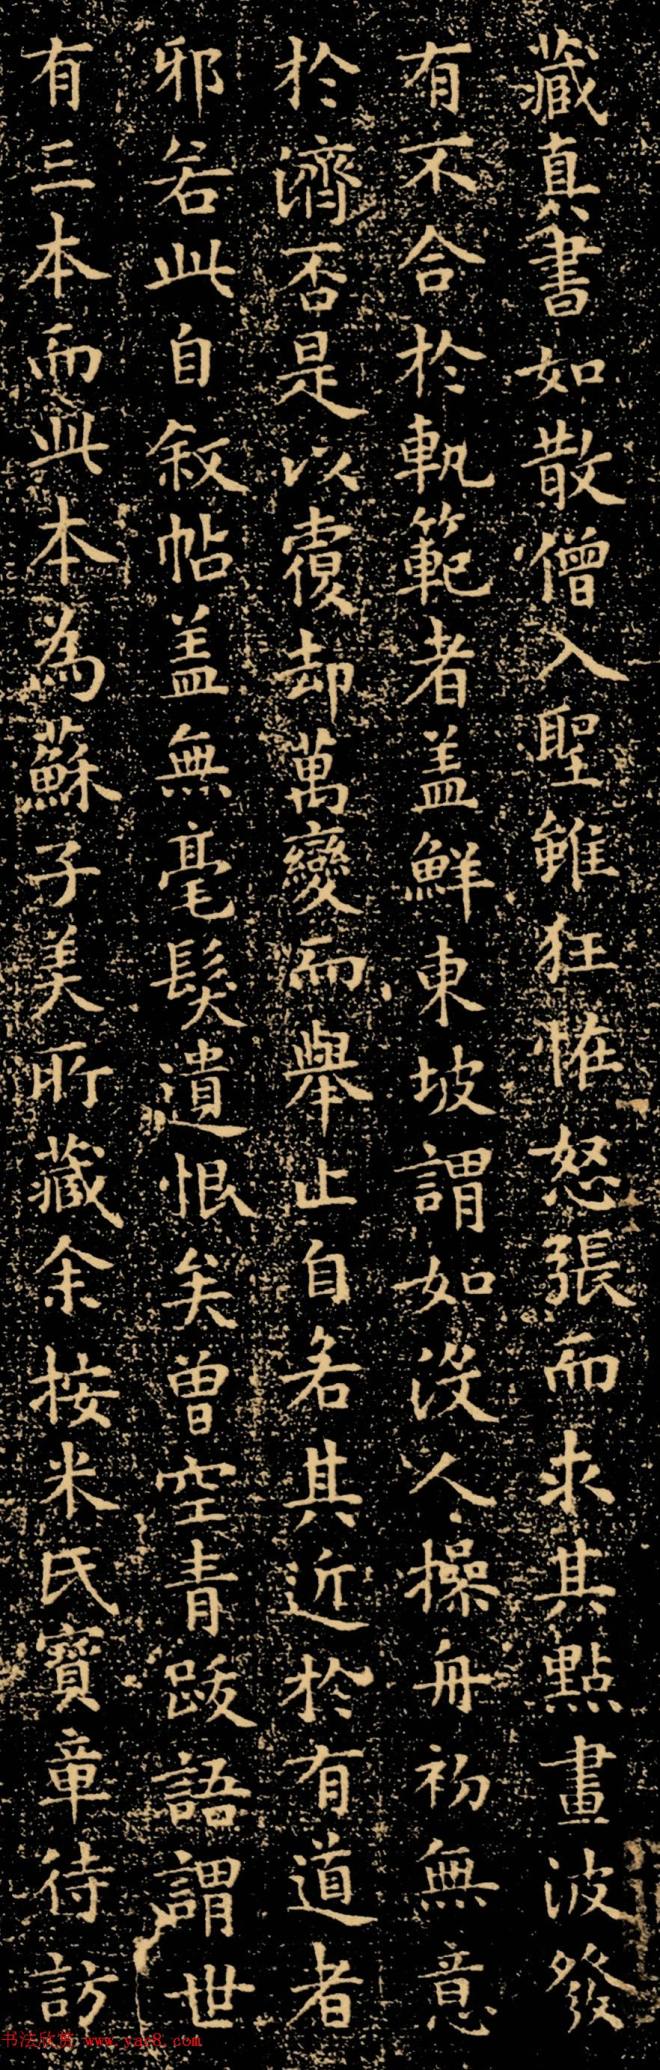 藏真書如散僧入聖雖狂恠怒張而求其點畫波發
有不合於軌範者盖鮮東坡謂如沒人操舟初無意
於濟否是以覆却萬變而舉止自若其近於有道者
邪若此自叙帖盖無毫髮遺恨矣曽空青跋語謂世
有三本而此本為蘇子美所藏余按米氏寶章待訪
书法欣赏 www.yac8.com